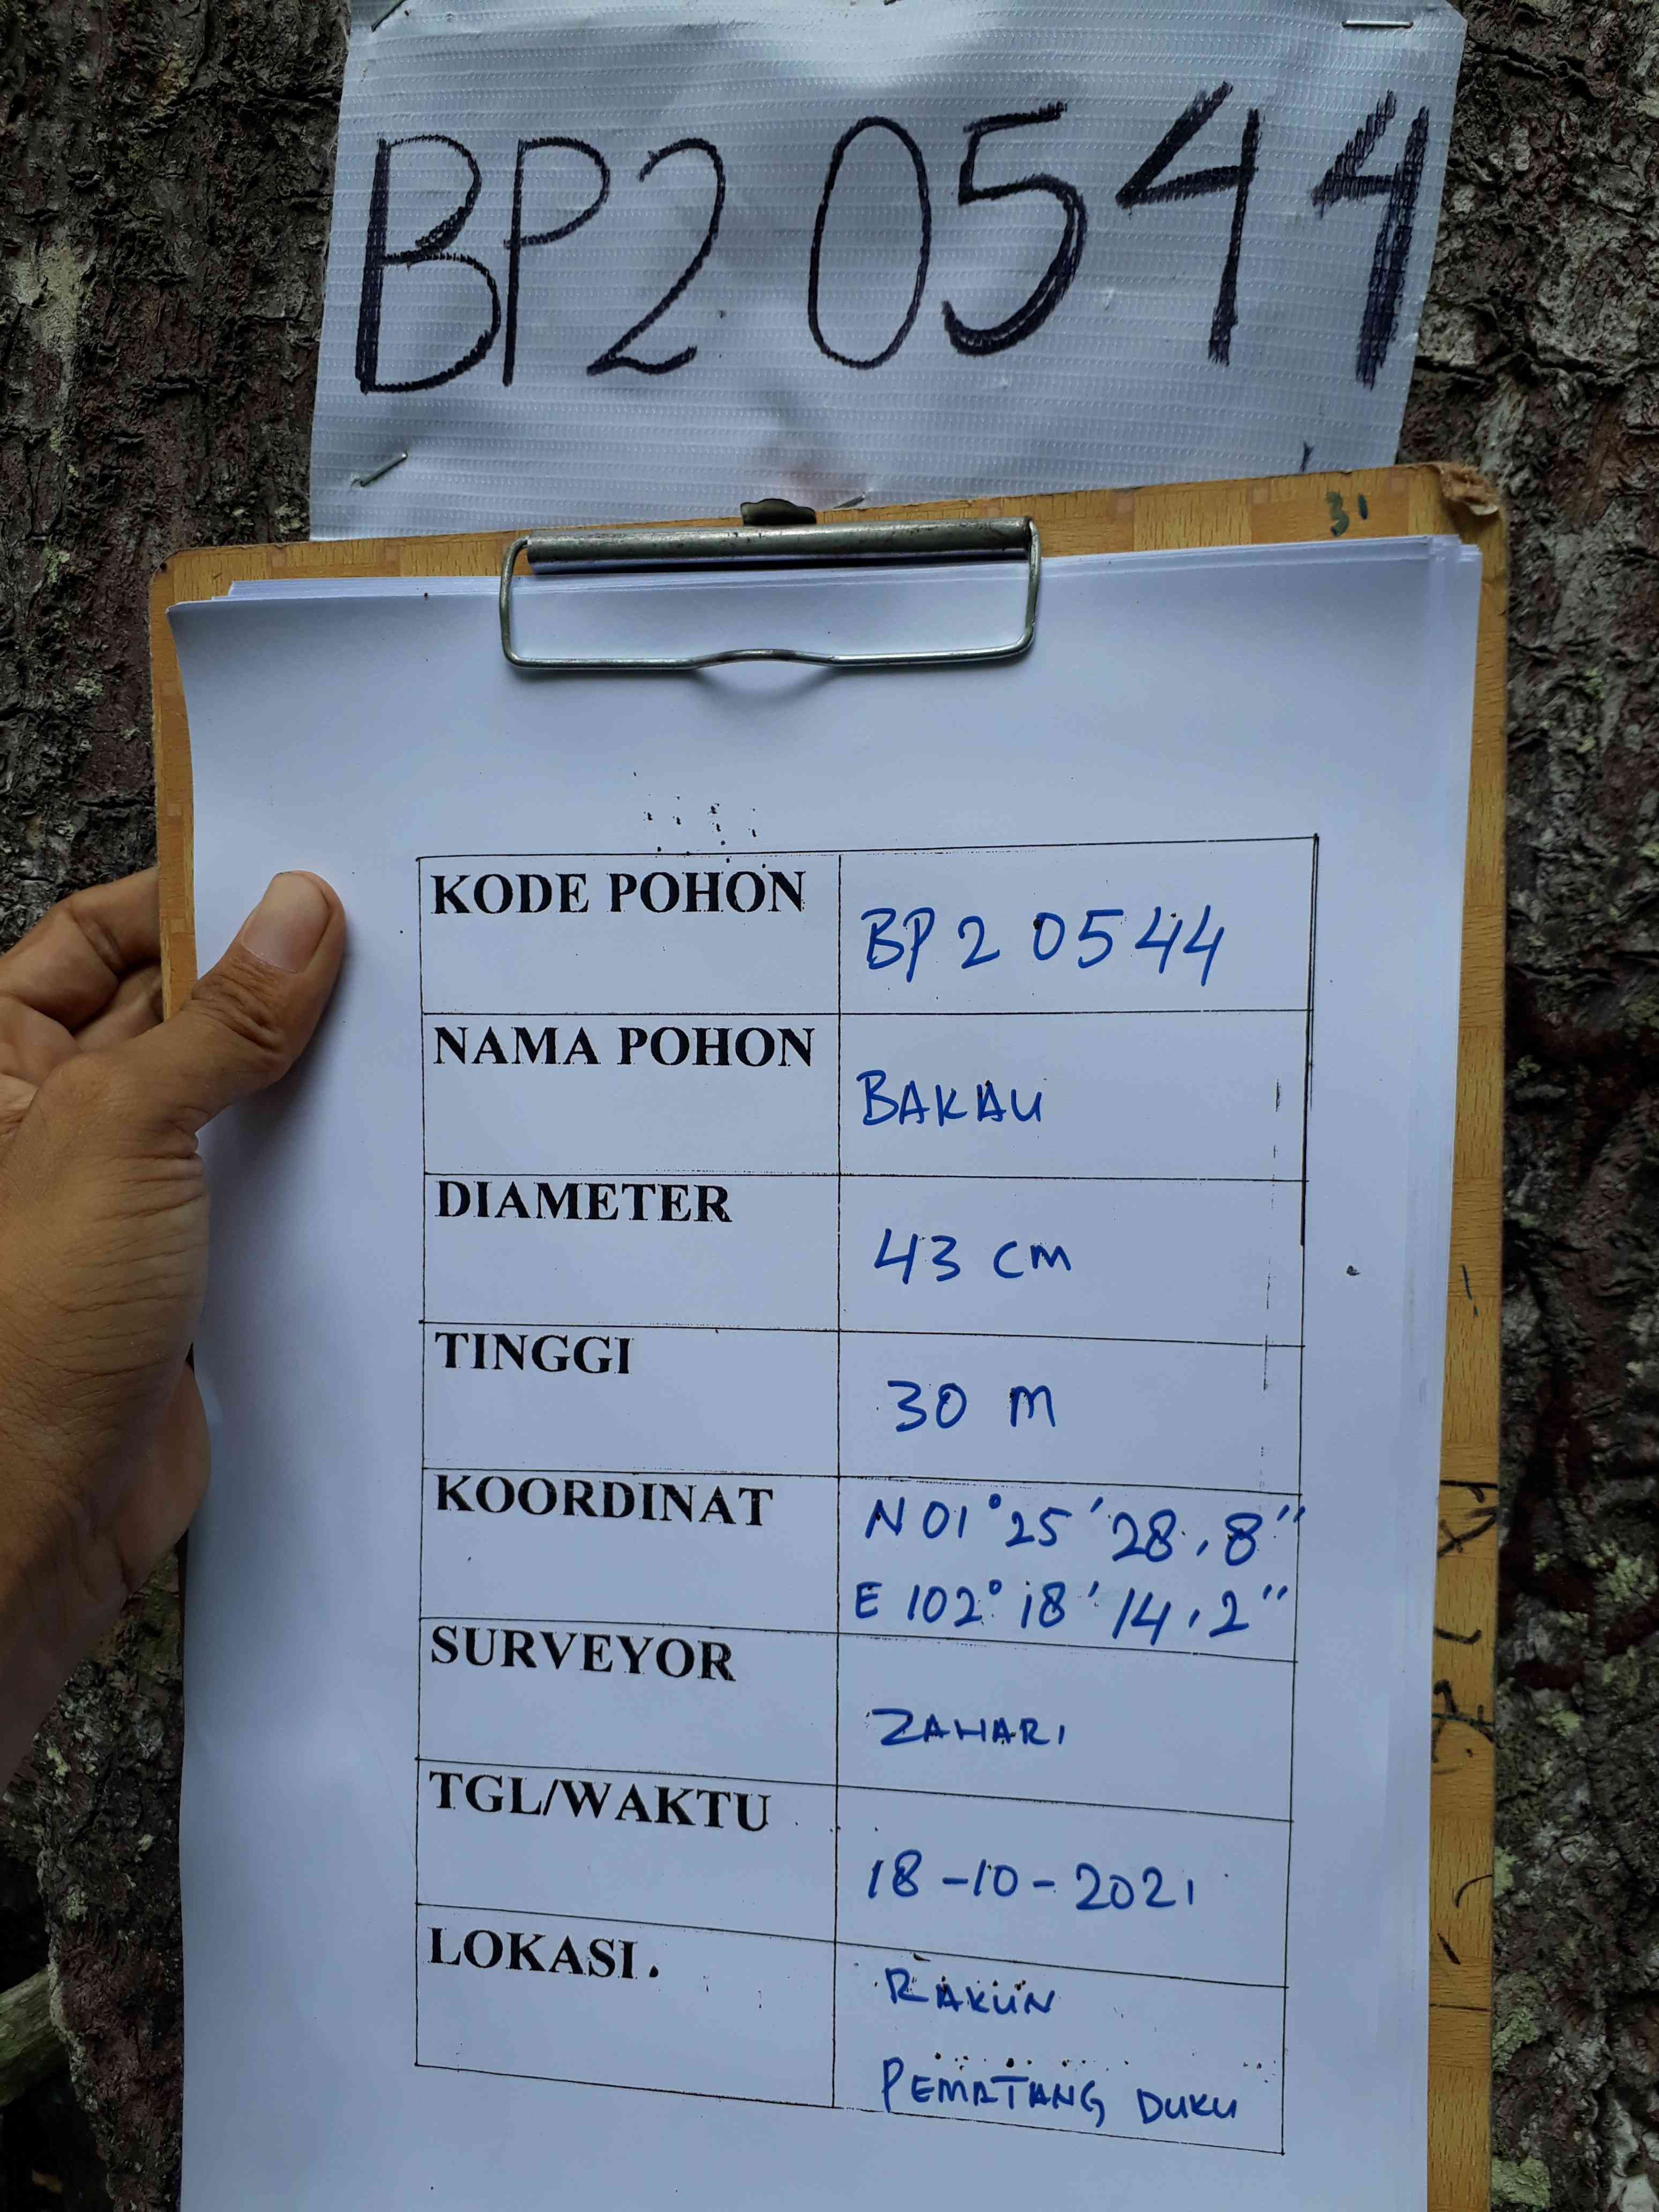 BP2 0544
31
KODE POHON
BP2 0544
NAMA POHON
BAKAU
DIAMETER
43 cm
TINGGI
30 m
KOORDINAT
N 01° 25' 28,8"
E 102° 18' 14,2"
SURVEYOR
ZAHARI
TGL/WAKTU
18-10-2021
LOKASI.
RAKUN
PEMATANG DUKU